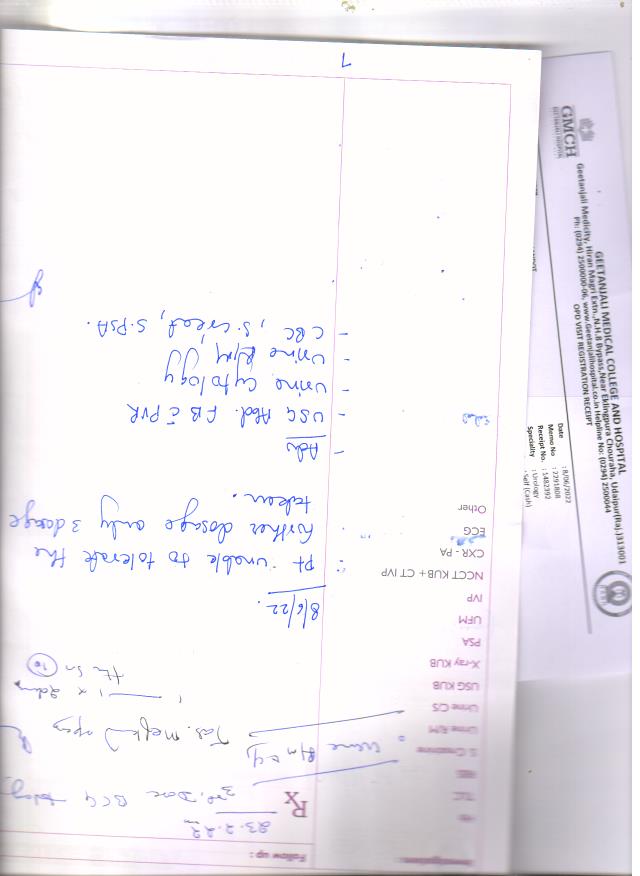 Investigations :
Follow up :
Hb
TLC
RBS
S. Creatinine
Urine R/M
Urine C/S
USG KUB
X-ray KUB
PSA
UFM
IVP
NCCT KUB + CT IVP
CXR - PA
ECG
Other
23.2.22
Rx
3rd Dose BCG today
Urine R/M & C/S
Tab.
10
8/6/22.
Pt unable to tolerate the
further dosage only 3 dosage
taken.
- Adv
- USG Abd. FB c̄ PVR
- Urine cytology
- Urine R/M
- CBC, S. creat, S. PSA.
GMCH
GEETANJALI HOSPITAL
GEETANJALI MEDICAL COLLEGE AND HOSPITAL
Geetanjali Medicity, Hiran Magri Extn.,N.H.8 Bypass,Near Eklingpura Chouraha, Udaipur(Raj.)313001
Ph: (0294) 2500000-06, www.Geetanjalihospital.co.in Helpline No: (0294) 2500044
OPD VISIT REGISTRATION RECEIPT
Date : 8/06/2022
Memo No : 2291808
Receipt No. : 1482392
Speciality : Urology
Self (Cash)